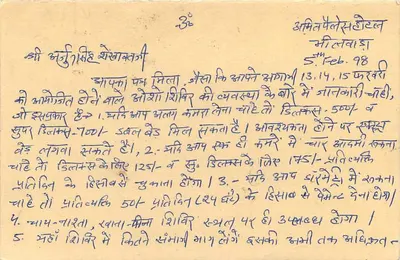 ॐ
अमित पैलेस होटल
भीलवाड़ा
5th Feb. 98
श्री अर्जुनसिंह शेखावतजी
आपका पत्र मिला, जैसा कि आपने आगामी 13, 14, 15 फरवरी
को आयोजित होने वाले ओशो शिविर की व्यवस्था के बारे में जानकारी चाही,
जो इस प्रकार है → 1. यदि आप अलग कमरा लेना चाहे तो डिलक्स - 500/- व
सुपर डिलक्स - 700/- डबल बेड मिल सकता है। आवश्यकता होने पर
बेड लगवा सकते हैं, 2. - यदि आप एक ही कमरे में चार आदमी रूकना
चाहे तो डिलक्स के लिए 125/- व सु. डिलक्स के लिए 175/- प्रतिव्यक्ति
प्रतिदिन के हिसाब से चुकाना होगा। 3. - यदि आप डोरमेट्री में रूकना
चाहे तो प्रतिव्यक्ति 50/- प्रतिदिन (24 घंटे) के हिसाब से पेमेन्ट देना होगा।
4. चाय-नाश्ता, खाना-पीना शिविर स्थल पर ही उपलब्ध होगा।
5. यहाँ शिविर में कितने संभागी भाग लेंगे इसकी अभी तक अधिकृत -